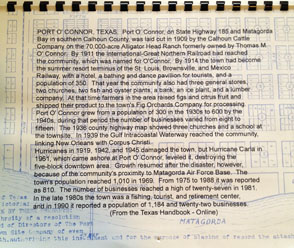 PORT O'CONNOR, TEXAS. Port O'Connor, on State Highway 185 and Matagorda
Bay in southern Calhoun County, was laid out in 1909 by the Calhoun Cattle
Company on the 70,000-acre Alligator Head Ranch formerly owned by Thomas M.
O'Connor. By 1911 the International-Great Northern Railroad had reached
the community, which was named for O'Connor. By 1914 the town had become
the summer resort terminus of the St. Louis, Brownsville, and Mexico
Railway, with a hotel, a bathing and dance pavilion for tourists, and a
population of 250. That year the community also had three general stores,
two churches, two fish and oyster plants, a bank, an ice plant, and a lumber
company. At that time farmers in the area raised figs and citrus fruit and
shipped their product to the town's Fig Orchards Company for processing
Port O'Connor grew from a population of 300 in the 1930s to 600 by the
1940s; during that period the number of businesses varied from eight to
fifteen. The 1936 county highway map showed three churches and a school at
the townsite. In 1939 the Gulf Intracoastal Waterway reached the community,
linking New Orleans with Corpus Christi.
Hurricanes in 1919, 1942, and 1945 damaged the town, but Hurricane Carla in
1961, which came ashore at Port O'Connor, leveled it, destroying the
five-block downtown area. Growth resumed after the disaster, however,
because of the community's proximity to Matagorda Air Force Base. The
town's population reached 1,010 in 1969. From 1975 to 1988 it was reported
as 810. The number of businesses reached a high of twenty-seven in 1981.
In the late 1980s the town was a fishing, tourist, and retirement center,
and in 1990 it reported a population of 1,184 and twenty-two businesses.
(From the Texas Handbook - Online)
MATAGORDA